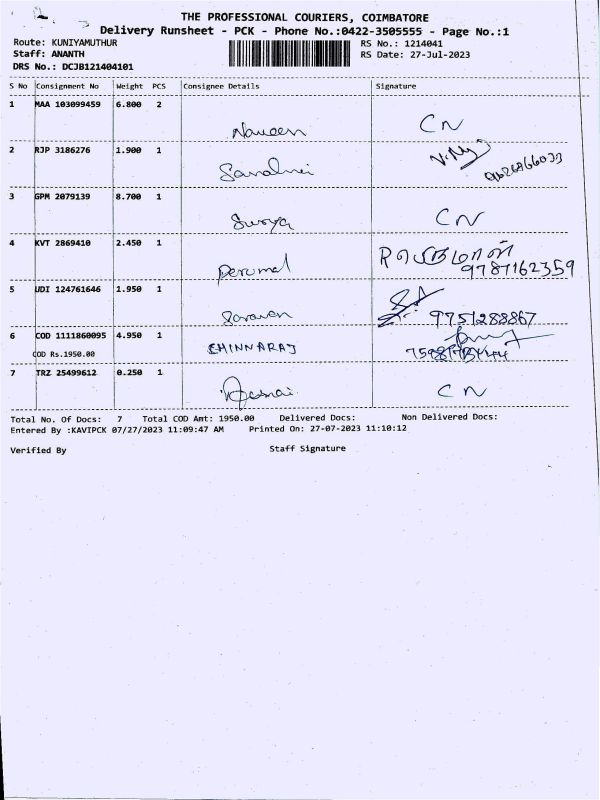 THE PROFESSIONAL COURIERS, COIMBATORE
Delivery Runsheet - PCK - Phone No.:0422-3505555 - Page No.:1
Route: KUNIYAMUTHUR RS No.: 1214041
Staff: ANANTH RS Date: 27-Jul-2023
DRS No.: DCJB121404101
S No Consignment No Weight PCS Consignee Details Signature
1 MAA 103099459 6.800 2
Naveen CN
2 RJP 3186276 1.900 1
3 GPM 2079139 8.700 1
Surya CN
4 KVT 2869410 2.450 1
Perumal பெருமாள்
9787162359
5 UDI 124761646 1.950 1
Saravan 9751288867
6 COD 1111860095 4.950 1
CHINNARAJ
COD Rs.1950.00
7 TRZ 25499612 0.250 1
CN
Total No. Of Docs: 7 Total COD Amt: 1950.00 Delivered Docs: Non Delivered Docs:
Entered By :KAVIPCK 07/27/2023 11:09:47 AM Printed On: 27-07-2023 11:10:12
Verified By Staff Signature